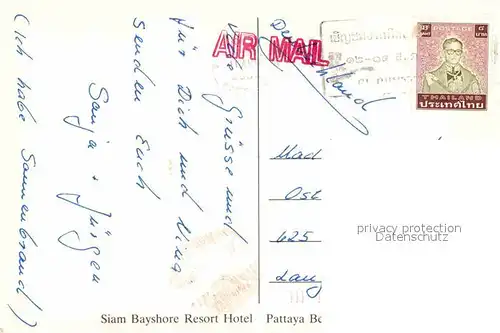 AIR MAIL
Grüsse und
für Dich und Nina
senden Euch
Sanja + Jürgen
(Ich habe Sonnenbrand!)
Siam Bayshore Resort Hotel Pattaya Be
POSTAGE
THAILAND
ประเทศไทย
Mad
Ost
625
Lang
privacy protection
Datenschutz